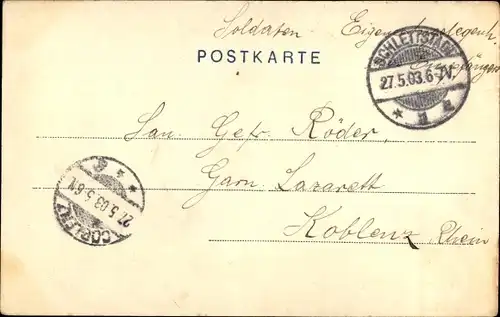 Soldaten Eigen
Empfängers
POSTKARTE
SCHLETTSTADT
27.5.03.6-7N.
San. Gefr. Röder,
Garn. Lazarett
Koblenz, Rhein
27.5.03.5-6N